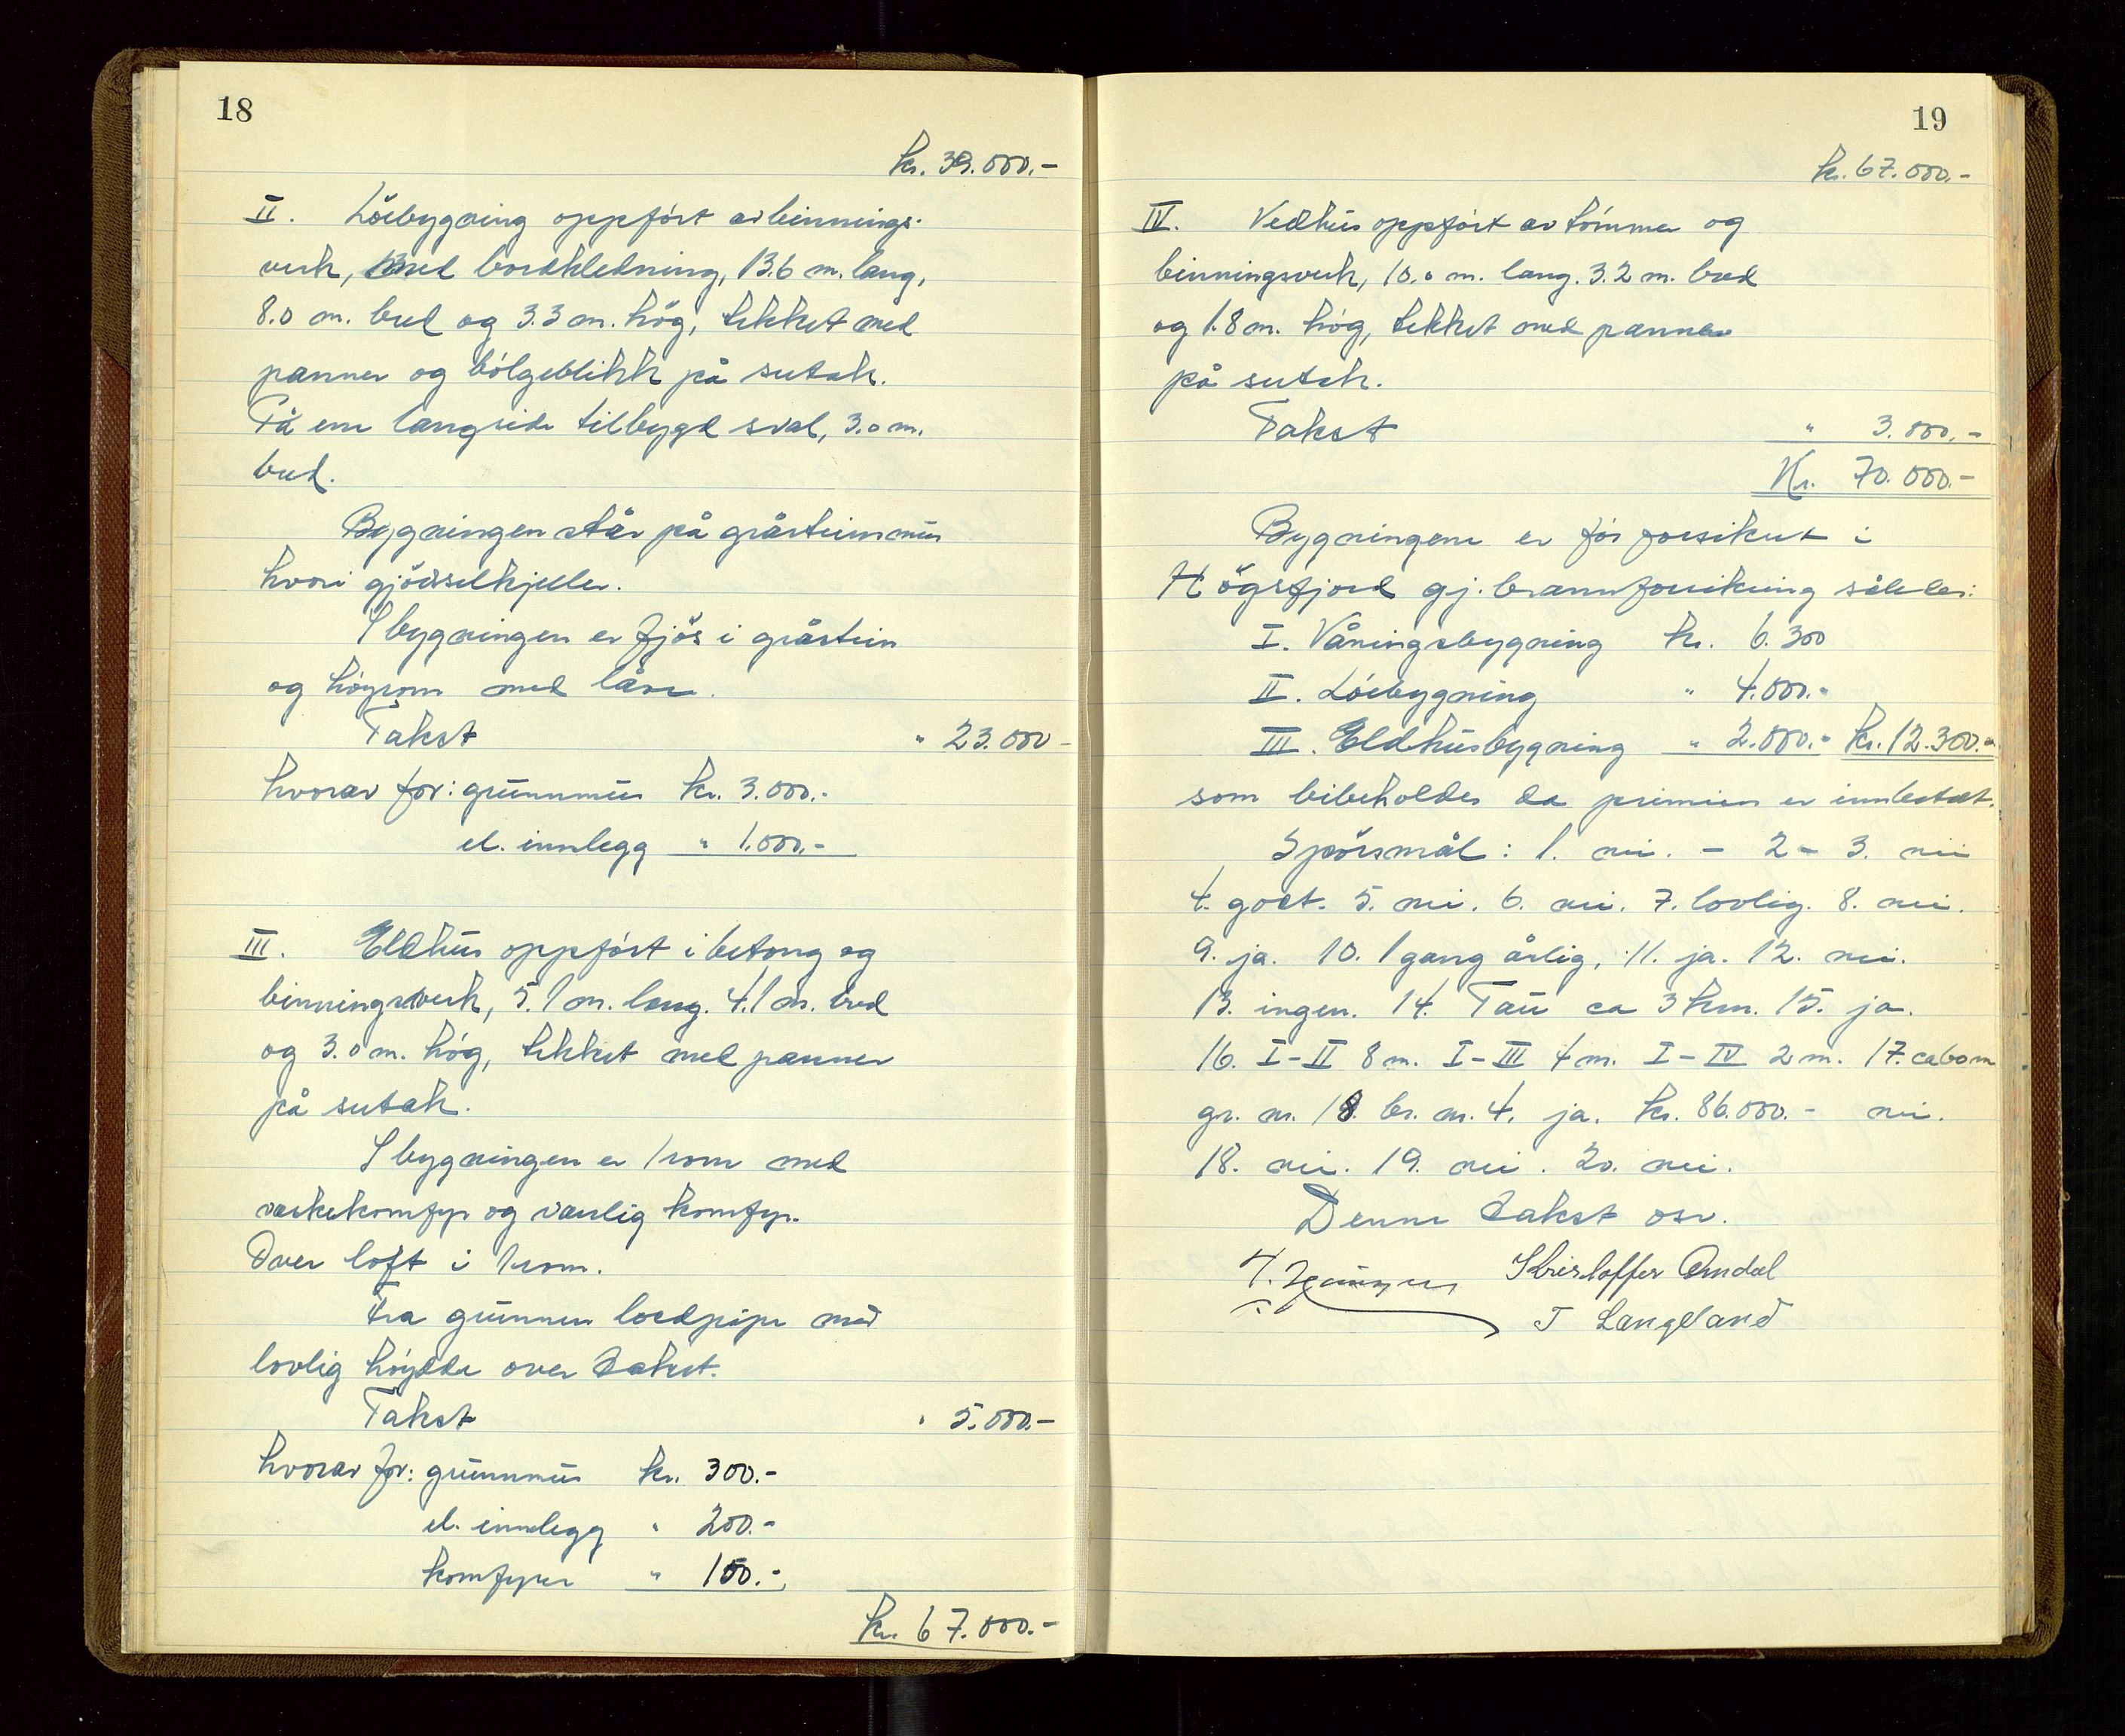 18
kr. 39.000.-
II. Löebygning oppført av binnings-
verk, med bordkledning, 13.6 m. lang,
8.0 m. bred og 3.3 m. høg, tekket med
panner og bølgeblikk på sutak.
På ene langside tilbygd sval, 3.0 m.
bred.
Bygningen står på gråsteinsmur
hvori gjødselkjeller.
I bygningen er fjøs i gråstein
og høyrom med låve.
Takst " 23.000-
hvorav for: grunnmur kr. 3.000.-
el. innlegg " 1.000.-
III. Eldhus oppført i betong og
binningsverk, 5.1 m. lang. 4.1 m. bred
og 3.0 m. høg, tekket med panner
på sutak.
I bygningen er 1 rom med
vaskekomfyr og vanlig komfyr.
Over loft i 1 rom.
Fra grunnen loddpipe med
lovlig høydde over taket.
Takst " 5.000.-
hvorav for: grunnmur kr. 300.-
el. innlegg " 200.-
komfyrer " 100.-
kr. 67.000.-
19
kr. 67.000.-
IV. Vedhus oppført av tømmer og
binningsverk, 10.0 m. lang. 3.2 m. bred
og 1.8 m. høg, tekket med panner
på sutak.
Takst " 3.000.-
Kr. 70.000.-
Bygningene er før forsikret i
Høgsfjord gj. brannforsikring således:
I. Våningsbygning kr. 6.300
II. Löebygning " 4.000.-
III. Eldhusbygning " 2.000.- kr. 12.300.-
som bibeholdes da premien er innbetalt.
Spørsmål: 1. nei. - 2 - 3. nei
4. godt. 5. nei. 6. nei. 7. lovlig. 8. nei.
9. ja. 10. 1 gang årlig, 11. ja. 12. nei.
13. ingen. 14. Tau ca 3 km. 15. ja.
16. I-II 8 m. I-III 4 m. I-IV 2 m. 17. ca 60 m
gr. nr. 18. br. nr. 4. ja. kr. 86.000.- nei.
18. nei. 19. nei. 20. nei.
Denne takst osv.
Kristoffer Arndal
T Langeland